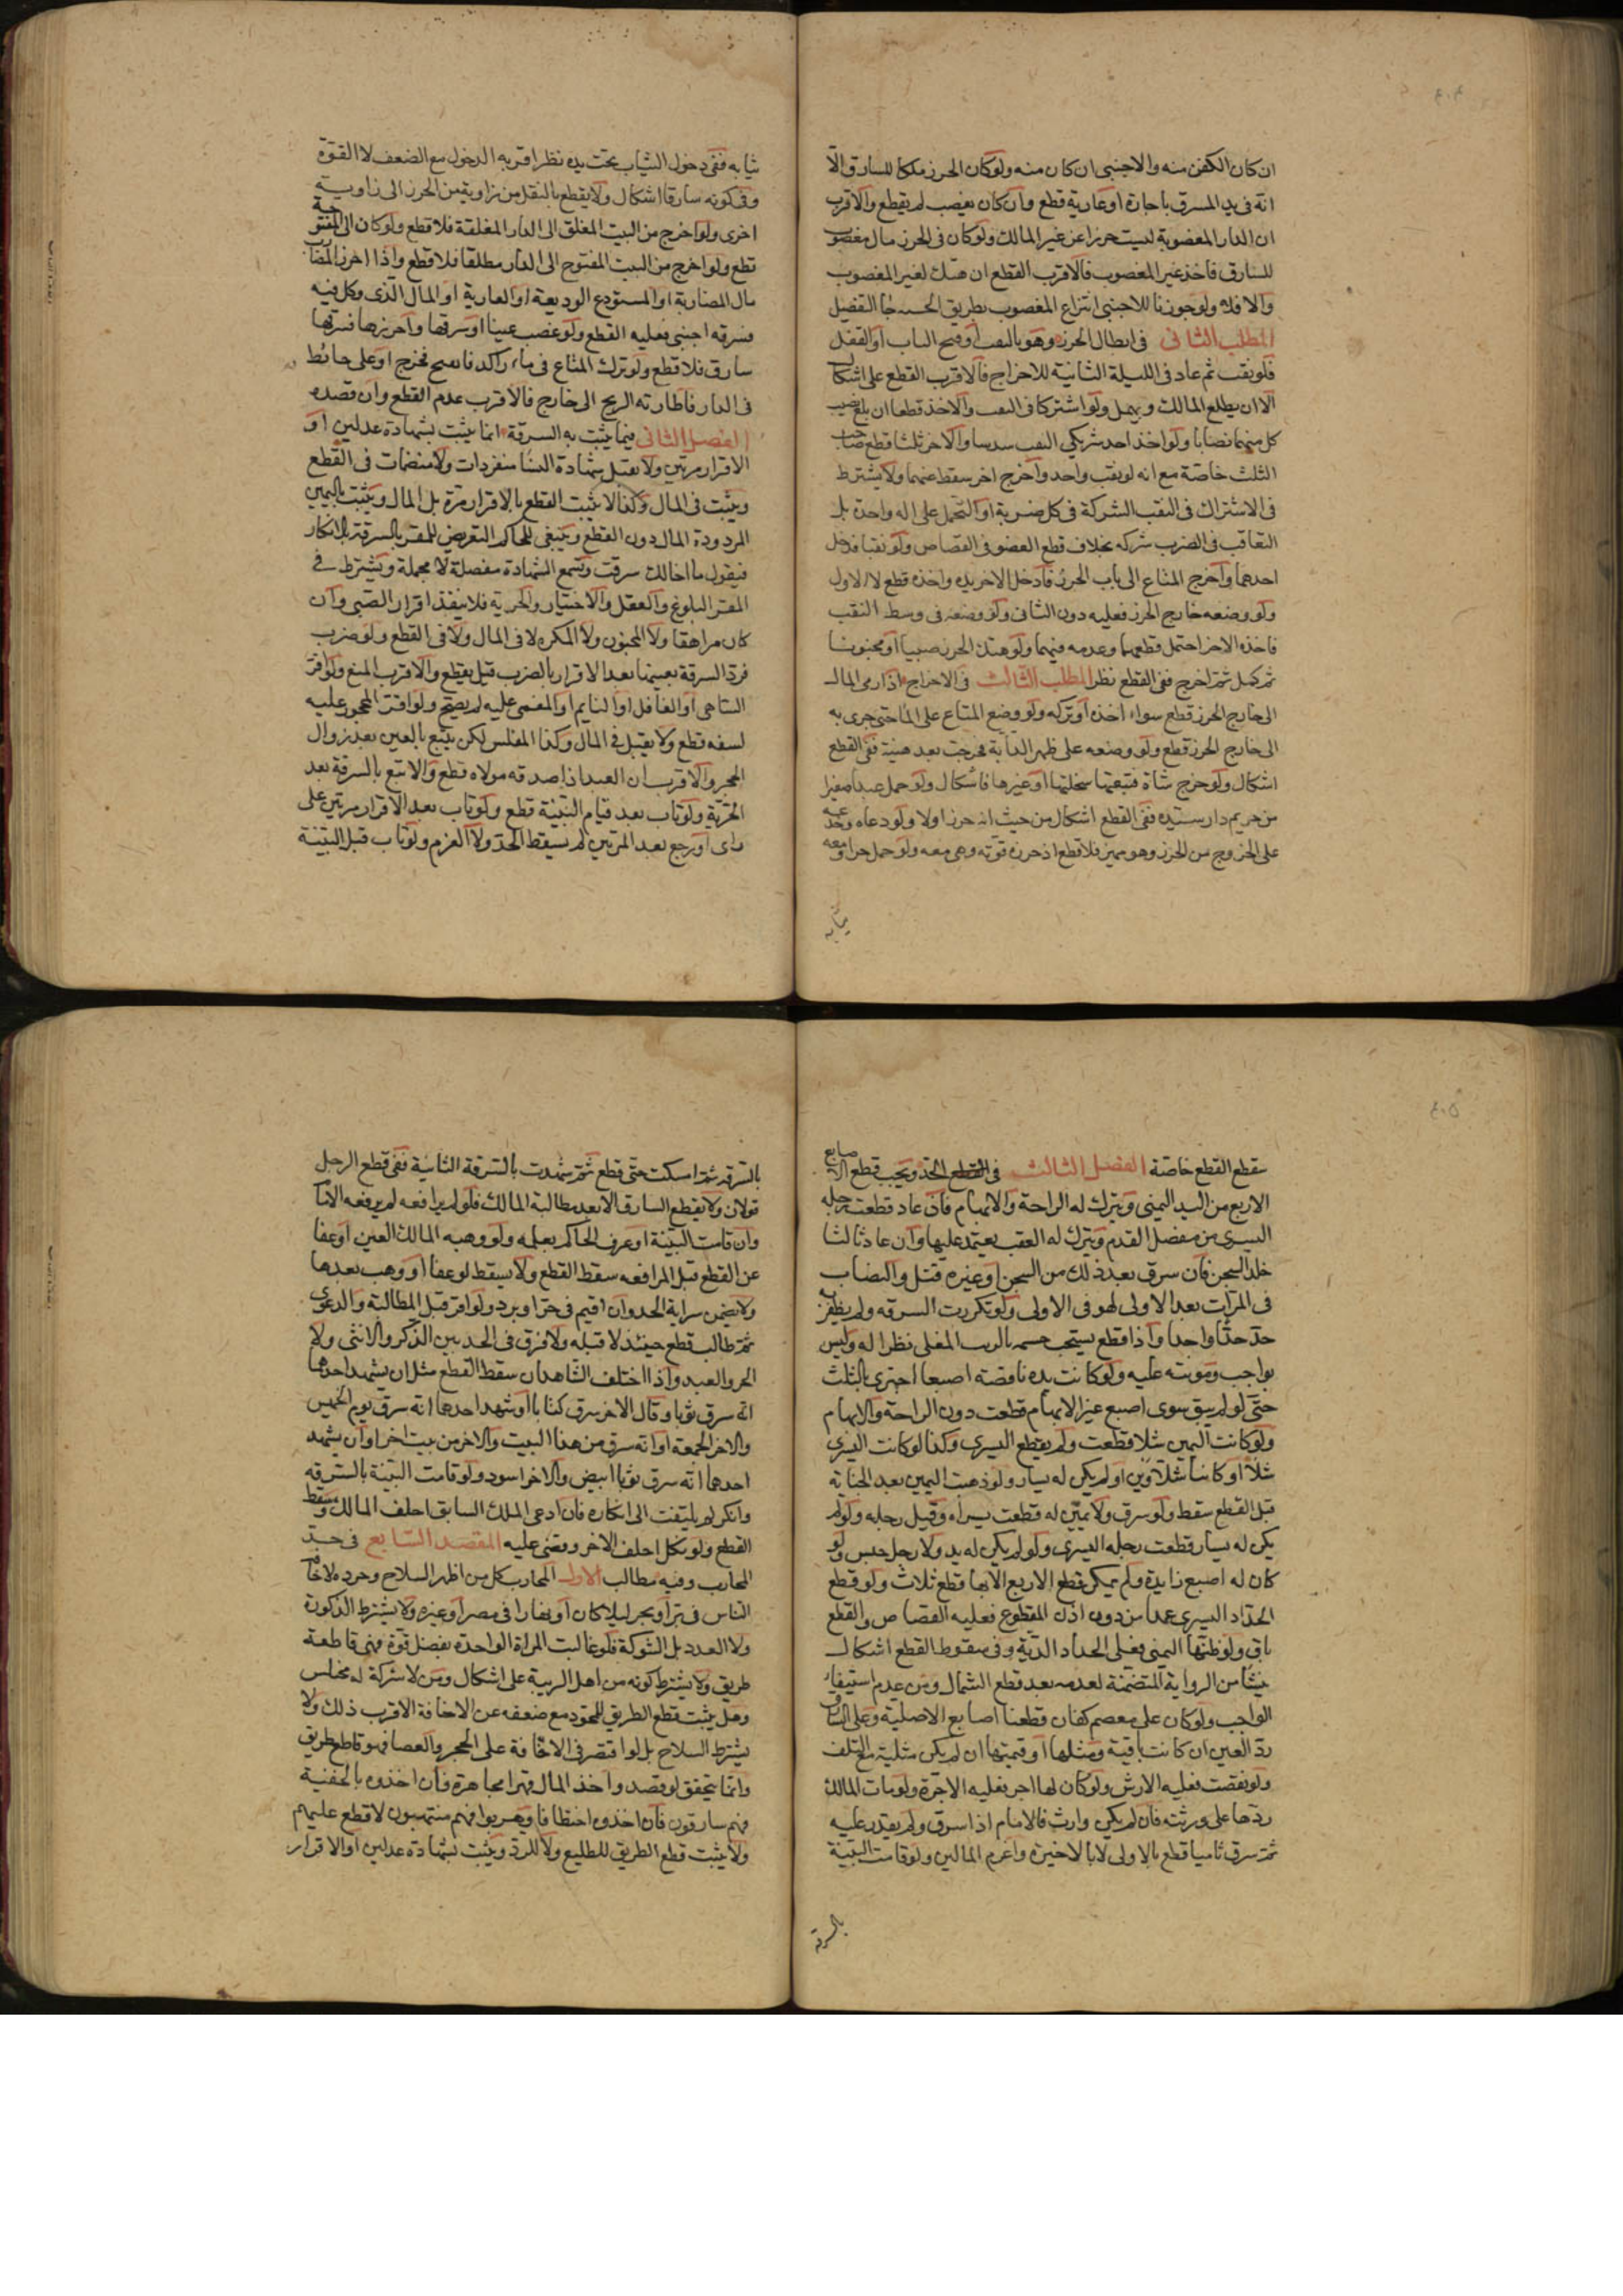 ان كان الكفن منه والاجنبى ان كان منه ولو كان الحرز ملكا للسارق الّا
انه فى يد المسرق باجارة او عارية قطع وان كان بغصب لم يقطع والاقرب
ان الدار المغصوبة ليست حرزا عن غير المالك ولو كان فى الحرز مال مغصوب
للسارق فاخذ غير المغصوب فالاقرب القطع ان هتك لغير المغصوب
والا فلا ولو جوزنا للاجنبى انتزاع المغصوب بطريق الحسبه جاء التفصيل
المطلب الثانى فى ابطال الحرز وهو بالنقب او فتح الباب او القفل
فلو نقب ثم عاد فى الليلة الثانية للاخراج فالاقرب القطع على اشكال
الا ان يطلع المالك ويهمل ولو اشتركا فى النقب والاخذ قطعا ان بلغ نصيب
كل منهما نصابا ولو اخذ احد شريكى النقب سدسا والاخر ثلثا قطع صاحب
الثلث خاصة مع انه لو نقب واحد واخرج اخر سقط عنهما ولا يشترط
فى الاشتراك فى النقب الشركة فى كل ضربة او التحمل على اله واحدة بل
التعاقب فى الضرب شركه بخلاف قطع العضو فى القصاص ولو نقبا فدخل
احدهما واخرج المتاع الى باب الحرز فادخل الاخر يده واخذه قطع لا الاول
ولو وضعه خارج الحرز فعليه دون الثانى ولو وضعه فى وسط النقب
فاخذه الاخر احتمل قطعهما وعدمه فيهما ولو هتك الحرز صبيا او مجنونا
ثم كمل ثم اخرج ففى القطع نظر المطلب الثالث فى الاخراج اذا رمى المال
الى خارج الحرز قطع سواء اخذه او تركه ولو وضع المتاع على الماء حتى جرى به
الى خارج الحرز قطع ولو وضعه على ظهر الدابة فخرجت بعد هنيئة ففى القطع
اشكال ولو خرج شاة فتبعتها سخلتها او غيرها فاشكال ولو حمل عبدا صغيرا
من حريم دار سيده ففى القطع اشكال من حيث انه حرز اولا ولو دعاه وخدعه
على الخروج من الحرز وهو مميز فلا قطع اذ حرزه قوته وهى معه ولو حمل حرا ومعه
ثيابه
ثيابه ففى دخول الثياب تحت يده نظر اقربه الدخول مع الضعف لا القوة
وفى كونه سارقا اشكال ولا يقطع بالنقل من زاوية من الحرز الى زاوية
اخرى ولو اخرج من البيت المغلق الى الدار المغلقة فلا قطع ولو كان الى المفتوحة
قطع ولو اخرج من البيت المفتوح الى الدار مطلقا فلا قطع واذا احرز المضارب
مال المضاربة او المستودع الوديعة او العارية او المال الذى وكل فيه
فسرقه اجنبى فعليه القطع ولو غصب عينا او سرقها واحرزها فسرقها
سارق فلا قطع ولو ترك المتاع فى ماء راكد فانفتح فخرج او على حائط
فى الدار فاطارته الريح الى خارج فالاقرب عدم القطع وان قصده
الفصل الثانى فيما يثبت به السرقة انما يثبت بشهادة عدلين او
الاقرار مرتين ولا تقبل شهادة النساء منفردات ولا منضمات فى القطع
ويثبت فى المال وكذا لا يثبت القطع بالاقرار مرة بل المال ويثبت باليمين
المردودة المال دون القطع وينبغى للحاكم التعريض للمقر بالسرقة بالانكار
فيقول ما اخالك سرقت وتسمع الشهادة مفصلة لا مجملة ويشترط فى
المقر البلوغ والعقل والاختيار والحرية فلا ينفذ اقرار الصبى وان
كان مراهقا ولا المجنون ولا المكره لا فى المال ولا فى القطع ولو ضرب
فرد السرقة بعينها بعد الاقرار بالضرب قيل يقطع والاقرب المنع ولو اقر
الساهى او الغافل او النايم او المغمى عليه لم يصح ولو اقر المحجور عليه
لسفه قطع ولا يقبل فى المال وكذا المفلس لكن يتبع بالعين بعد زوال
الحجر والاقرب ان العبد اذا صدقه مولاه قطع والا يتبع بالسرقة بعد
الحرية ولو تاب بعد قيام البينة قطع ولو تاب بعد الاقرار مرتين على
راى او رجع بعد المرتين لم يسقط الحد ولا الغرم ولو تاب قبل البينة
سقطع القطع خاصة الفصل الثالث فى الحد ويجب قطع الاصابع
الاربع من اليد اليمنى ويترك له الراحة والابهام فان عاد قطعت رجله
اليسرى من مفصل القدم ويترك له العقب يعتمد عليها وان عاد ثالثا
خلد السجن فان سرق بعد ذلك من السجن او غيره قتل والنصاب
فى المرات بعد الاولى لهو فى الاولى ولو تكررت السرقه ولم يظفر به
حد حدا واحدا واذا قطع يستحب حسمه بالزيت المغلى نظرا له وليس
بواجب ومونته عليه ولو كانت يده ناقصة اصبعا اجتزى بالثلث
حتى لو لم يبق سوى اصبع غير الابهام قطعت دون الراحة والابهام
ولو كانت اليمين شلا قطعت ولم يقطع اليسرى وكذا لو كانت اليسرى
شلاّ او كانتا شلاّوين او لم يكن له يسار ولو ذهبت اليمين بعد الجناية
قبل القطع سقط ولو سرق ولا يمين له قطعت يسراه وقيل رجله ولو لم
يكن له يسار قطعت رجله اليسرى ولو لم يكن له يد ولا رجل حبس ولو
كان له اصبع زايدة ولم يمكن قطع الاربع الا بها قطع ثلاث ولو قطع
الحداد اليسرى عمدا من دون اذن المقطوع فعليه القصاص والقطع
باق ولو ظنها اليمنى فعلى الحداد الدية وفى سقوط القطع اشكال
ينشا من الرواية المتضمنة لعدمه بعد قطع الشمال ومن عدم استيفاء
الواجب ولو كان على معصم كفان قطعنا اصابع الاصلية وعلى السارق
رد العين ان كانت باقية ومثلها او قيمتها ان لم يكن مثلية مع التلف
ولو نقصت فعليه الارش ولو كان لها اجر فعليه الاجرة ولو مات المالك
ردها على ورثته فان لم يكن وارث فالامام اذا سرق ولم يقدر عليه
ثم سرق ثانيا قطع بالاولى لا بالاخيرة واغرم المالين ولو قامت البينة
بالسرقة
بالسرقه ثم امسكت حتى قطع ثم شهدت بالسرقة الثانية ففى قطع الرجل
قولان ولا يقطع السارق الا بعد مطالبة المالك فلو لم يرافعه لم يرفعه الامام
وان قامت البينة او عرف الحاكم بعلمه ولو وهبه المالك العين او عفا
عن القطع قبل المرافعه سقط القطع ولا يسقط لو عفا او وهب بعدها
ولا يضمن سراية الحد وان اقيم فى حر او برد ولو اقر قبل المطالبة والدعوى
ثم طالب قطع حينئذ لا قبله ولا فرق فى الحد بين الذكر والانثى ولا
الحر والعبد واذا اختلف الشاهدان سقط القطع مثل ان يشهد احدهما
انه سرق ثوبا وقال الاخر سرق كتابا او شهد احدهما انه سرق يوم الخميس
والاخر الجمعة او انه سرق من هذا البيت والاخر من بيت اخر او ان يشهد
احدهما انه سرق ثوبا ابيض والاخر اسود ولو قامت البينة بالسرقه
وانكر لم يلتفت الى انكاره فان ادعى الملك السابق احلف المالك وسقط
القطع ولو نكل احلف الاخر وقضى عليه المقصد السابع فى حد
المحارب وفيه مطالب الاول المحارب كل من اظهر السلاح وجرده لاخافة
الناس فى بر او بحر ليلا كان او نهارا فى مصر او غيره ولا يشترط الذكورة
ولا العدد بل الشوكة فلو غالبت المراة الواحدة بفضل قوة فهى قاطعة
طريق ولا يشترط كونه من اهل الريبة على اشكال ومن لا شركة له مختلس
وهل يثبت قطع الطريق للمجرد مع ضعفه عن الاخافة الاقرب ذلك ولا
يشترط السلاح بل لو اقتصر فى الاخافة على الحجر والعصا فهو قاطع طريق
وانما يتحقق لو قصد واخذ المال قهرا مجاهرة فان اخذوه بالخفية
فهم سارقون فان اخذوه اختطافا وهربوا فهم منتهبون لا قطع عليهم
ولا يثبت قطع الطريق للطليع ولا للردء ويثبت بشهادة عدلين او الاقرار